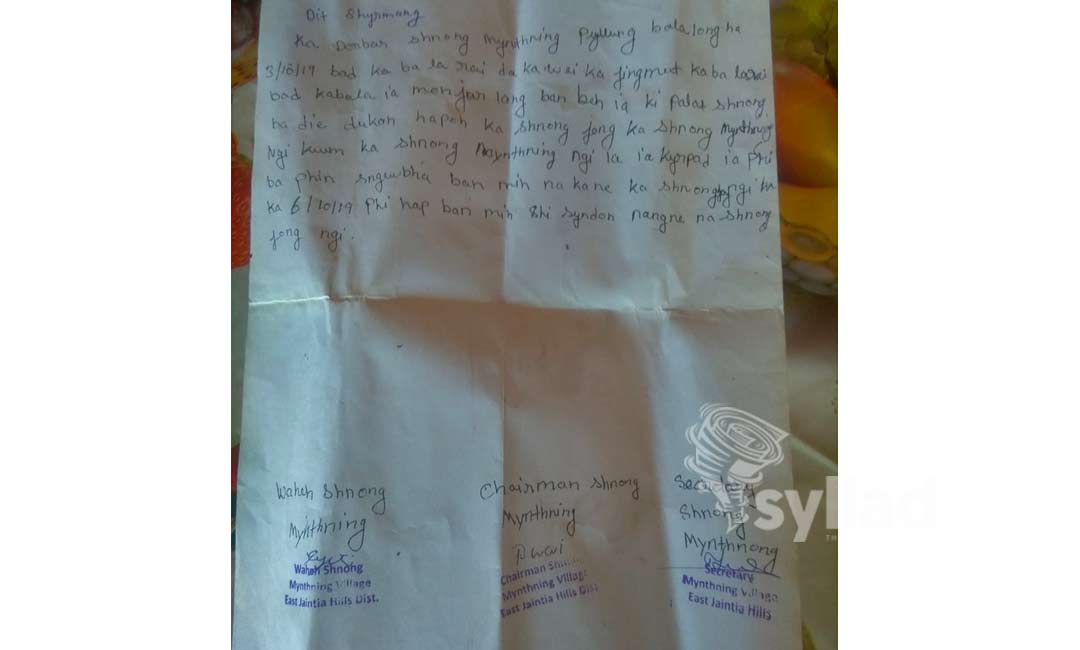 Dit Shyrmang
Ka Dorbar shnong Mynthning Pyllung bala long ha
3/10/19 bad ka ba la rai da kawei ka jingmut kaba la rai
bad kabala ia monjur lang ban beh ia ki palat shnong
ba die dukan hapoh ka shnong jong ka shnong Mynthning
Ngi kum ka shnong Mynthning ngi la ia kyrpad ia phi
ba phin sngewbha ban mih na kane ka shnong jong ngi ha
ka 6/10/19 phi hap ban mih shi syndon nangne na shnong
jong ngi.
Waheh Shnong
Chairman Shnong
Secretary
Mynthning
Mynthning
Shnong
Mynthnong
Waheh Shnong
Mynthning Village
East Jaintia Hills Dist.
Chairman
Mynthning Village
East Jaintia Hills Dist
Secretary
Mynthning Village
East Jaintia Hills
syllad